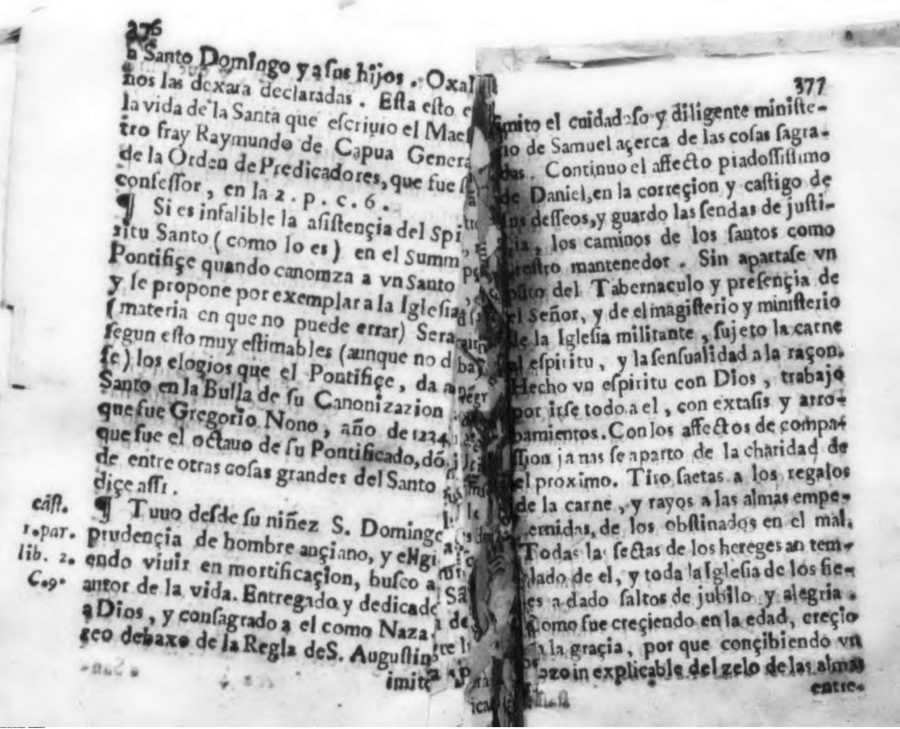 276
a Santo Domingo y a sus hijos. Oxal
nos las dexara declaradas. Esta esto e
la vida de la Santa que escriuio el Maes
tro fray Raymundo de Capua Genera
de la Orden de Predicadores, que fue s
confessor, en la 2. p. c. 6.
¶ Si es infalible la asistençia del Spi
ritu Santo (como lo es) en el Summ
Pontifiçe quando canoniza a vn Santo
y le propone por exemplar a la Iglesia
(materia en que no puede errar) Sera
segun esto muy estimables (aunque no d
fe) los elogios que el Pontifiçe, da a
Santo en la Bulla de su Canonizazion
que fue Gregorio Nono, año de 1234
que fue el octauo de su Pontificado, dõ
de entre otras cosas grandes del Santo
diçe assi.
cást.
1. par.
lib. 2.
C. 9.
¶ Tuuo desde su niñez S. Domingo
prudençia de hombre ançiano, y eligi
endo viuir en mortificaçion, busco a
autor de la vida. Entregado y dedicado
a Dios, y consagrado a el como Naza
reo debaxo de la Regla de S. Augustin
imito
377
imito el cuidadoso y diligente ministe-
rio de Samuel açerca de las cosas sagra-
das. Continuo el affecto piadossissimo
de Daniel, en la correçion y castigo de
sus desseos, y guardo las sendas de justi-
çia, los caminos de los santos como
nuestro mantenedor. Sin apartase vn
punto del Tabernaculo y presençia de
el Señor, y de el magisterio y ministerio
de la Iglesia militante, sujeto la carne
al espiritu, y la sensualidad a la raçon.
Hecho vn espiritu con Dios, trabajo
por irse todo a el, con extasis y arro-
bamientos. Con los affectos de compas-
sion jamas se aparto de la charidad de
el proximo. Tiro saetas a los regalos
de la carne, y rayos a las almas empe-
dernidas, de los obstinados en el mal.
Todas las sectas de los hereges an tem-
blado de el, y toda la Iglesia de los fie-
les a dado saltos de jubilo y alegria.
Como fue creçiendo en la edad, creçio
a la graçia, por que conçibiendo vn
gozo in explicable del zelo de las almas
entre-